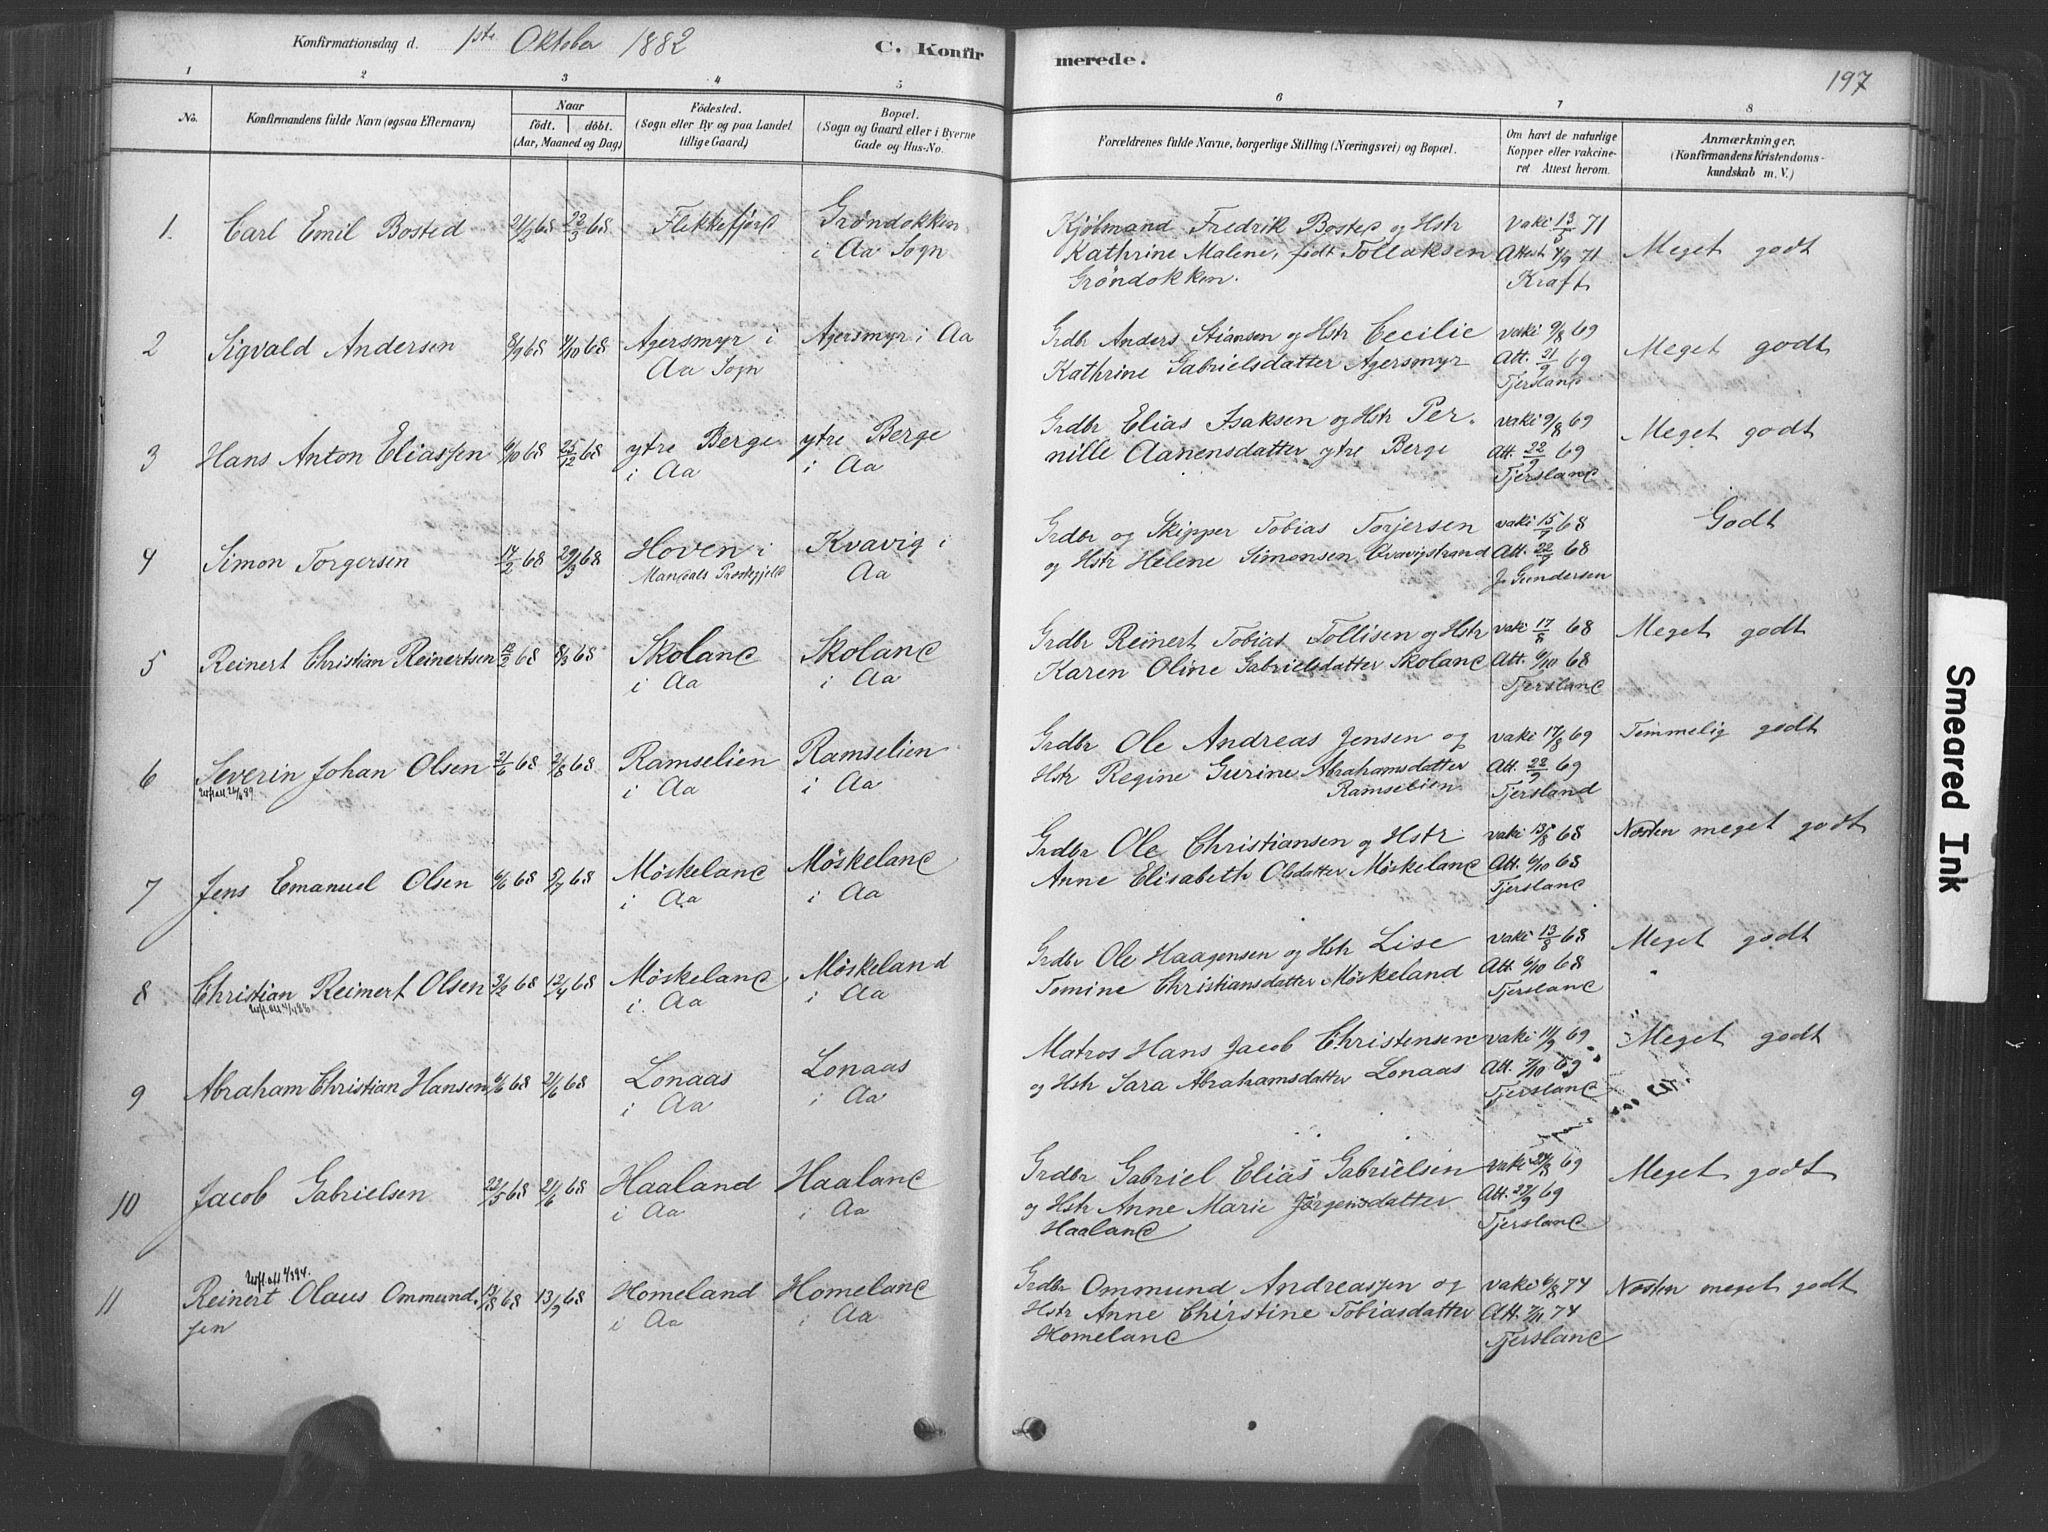 Konfirmationsdag d. 1ste Oktober 1882
C. Konfirmerede.
197
1 2 3 4 5 6 7 8
No.
Konfirmandens fulde Navn (ogsaa Efternavn)
Naar
födt. döbt.
(Aar, Maaned og Dag)
Födested.
(Sogn eller By og paa Landet
tillige Gaard)
Bopæl.
(Sogn og Gaard eller i Byerne
Gade og Hus-No.
Forældrenes fulde Navne, borgerlige Stilling (Næringsvei) og Bopæl.
Om havt de naturlige
Kopper eller vakcine-
ret Attest herom.
Anmærkninger.
(Konfirmandens Kristendoms-
kundskab m. V.)
1. Carl Emil Bosted 21/2 68 22/3 68 Flekkefjord
Grøndokken
i Aa Sogn
Kjøbmand Fredrik Bosted og Hstr
Kathrine Malene, født Tollaksen
Grøndokken.
Vaki 13/5 71
Attest 4/9 71
Kraft
Meget godt
2 Sigvald Andersen 8/9 68 4/10 68
Agersmyr i
Aa Sogn
Agersmyr i Aa
Grdbr Anders Stiansen og Hstr Cecilie
Kathrine Gabrielsdatter Agersmyr
vaki 9/8 69
Att. 21/9 69
Tjersland
Meget godt
3 Hans Anton Eliassen 6/10 68 25/12 68
ytre Berge
i Aa
ytre Berge
i Aa
Grdbr Elias Isaksen og Hstr Per-
nille Aanensdatter ytre Berge
vaki 9/8 69
Att. 22/9 69
Tjersland
Meget godt
4 Simon Torgersen 17/2 68 29/3 68
Hoven i
Mandals Prestegjeld
Kvavig i
Aa
Grdbr og Skipper Tobias Torjersen
og Hstr Helene Simonsen Qvavigstrand
vaki 15/7 68
Att. 22/7 68
J. Gundersen
Godt
5 Reinert Christian Reinertsen 12/2 68 8/3 68
Skoland
i Aa
Skoland
i Aa
Grdbr Reinert Tobias Tollisen og Hstr
Karen Oline Gabrielsdatter Skoland
vaki 17/8 68
Att. 6/10 68
Tjersland
Meget godt
6 Severin Johan Olsen 21/6 68 2/8 68
Ramselien
i Aa
Ramselien
i Aa
Grdbr Ole Andreas Jensen og
Hstr Regine Gurine Abrahamsdatter
Ramselien
vaki 17/8 69
Att. 22/9 69
Tjersland
Temmelig godt
7 Jens Emanuel Olsen 6/6 68 5/7 68
Møskeland
i Aa
Møskeland
i Aa
Grdbr Ole Christiansen og Hstr
Anne Elisabeth Olsdatter Møskeland
vaki 13/8 68
Att. 6/10 68
Tjersland
Næsten meget godt
8 Christian Reinert Olsen 3/2 68 12/4 68
Møskeland
i Aa
Møskeland
i Aa
Grdbr Ole Haagensen og Hstr Lise
Tomine Christiansdatter Møskeland
vaki 13/8 68
Att. 6/10 68
Tjersland
Meget godt
9 Abraham Christian Hansen 6/6 68 21/6 68
Lonaas
i Aa
Lonaas
i Aa
Matros Hans Jacob Christensen
og Hstr Sara Abrahamsdatter Lonaas
vaki 14/9 69
Att. 7/10 69
Tjersland
Meget godt
10 Jacob Gabrielsen 23/5 68 21/6 68
Haaland
i Aa
Haaland
i Aa
Grdbr Gabriel Elias Gabrielsen
og Hstr Anne Marie Jørgensdatter
Haaland
vaki 24/8 69
Att. 27/9 69
Tjersland
Meget godt
11 Reinert Olaus Ommund-
sen
13/8 68 13/9 68
Homeland
i Aa
Homeland
i Aa
Grdbr Ommund Andreassen og
Hstr Anne Christine Tobiasdatter
Homeland
vaki 6/8 74
Att. 7/11 74
Tjersland
Næsten meget godt
Smeared Ink